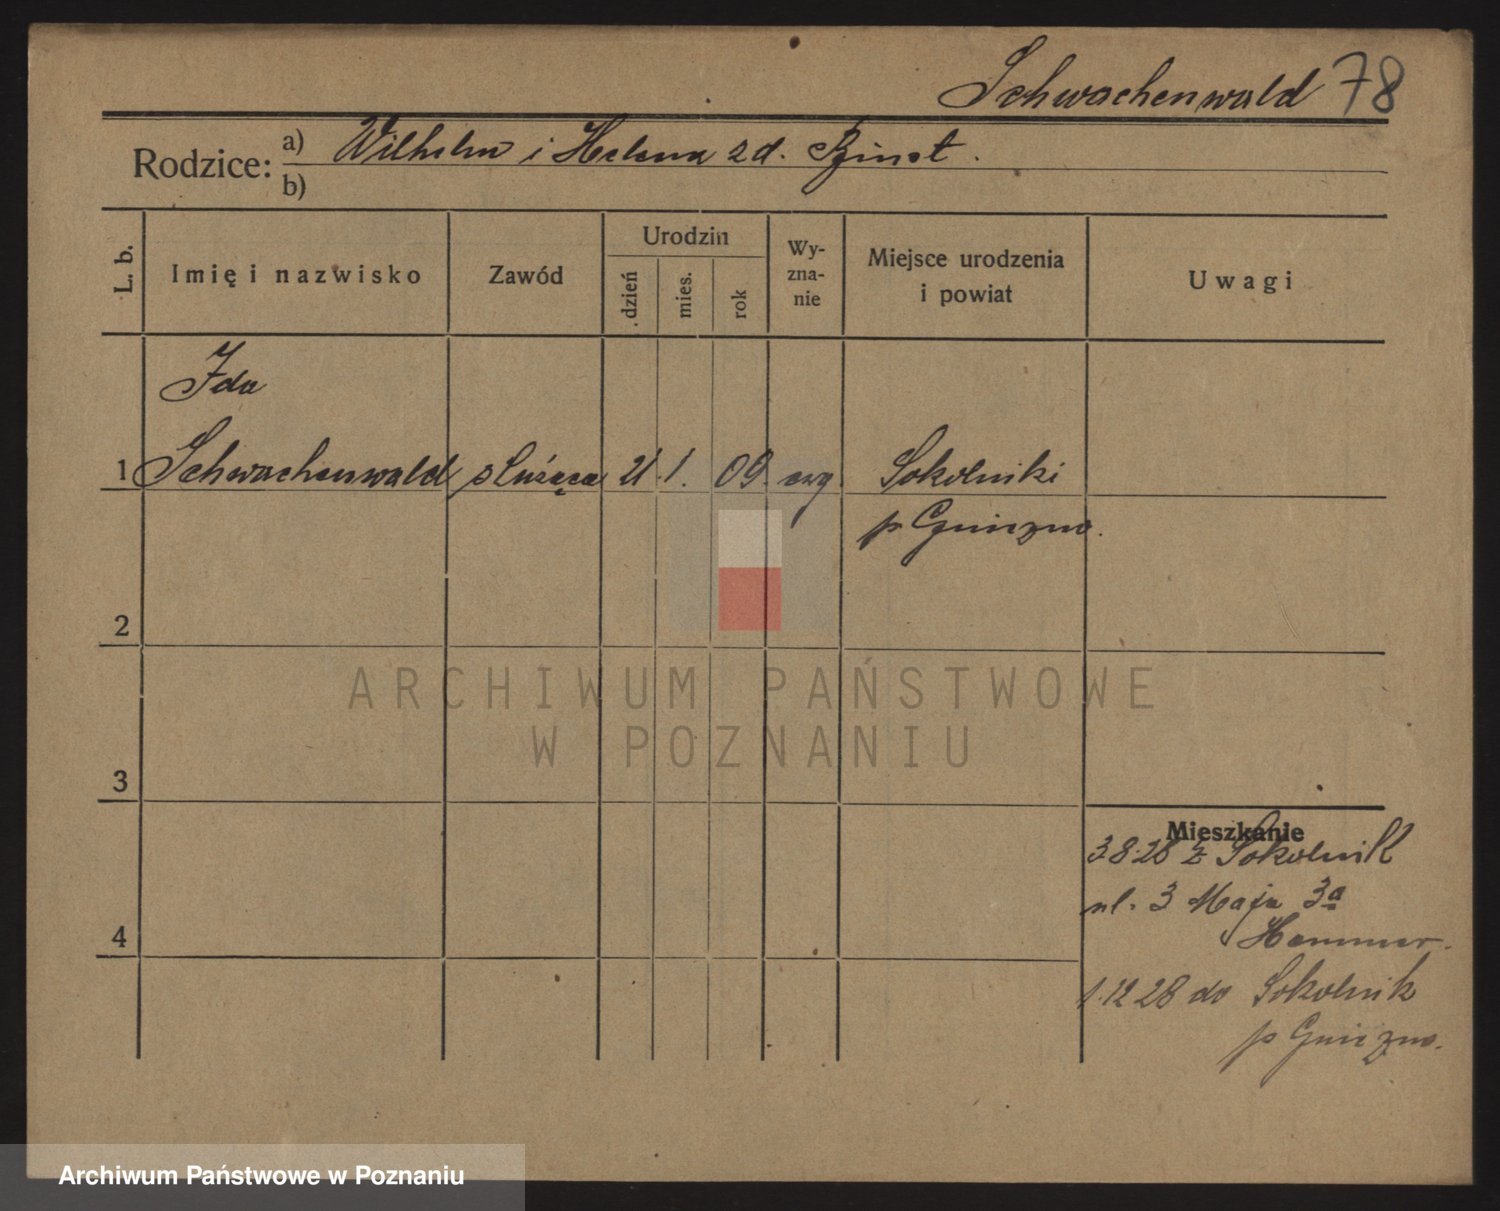 Schwachenwald 78
Rodzice: a) Wilhelm i Helena zd.
b)
L. b. Imię i nazwisko Zawód Urodzin dzień mies. rok Wyznanie Miejsce urodzenia i powiat Uwagi
Ida
1 Schwachenwald służąca 21. 1. 09. ewg. Sokolniki
p Gniezno.
2
ARCHIWUM PAŃSTWOWE
W POZNANIU
3
Mieszkanie
3.8.28 z Sokolnik
ul. 3 Maja 3a
Hammer.
4
1.12 28 do Sokolnik
p Gniezno.
Archiwum Państwowe w Poznaniu